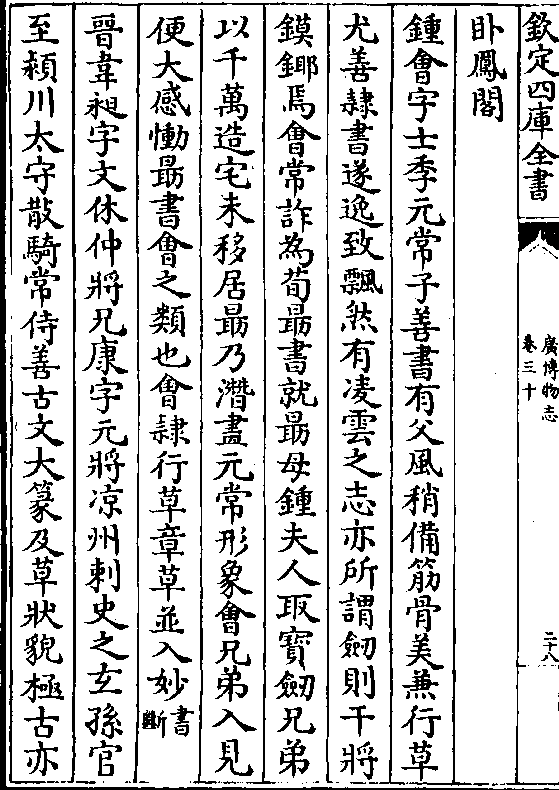 欽定四庫全書
廣博物志
卷三十
二十八
卧鳳閣
鍾會字士季元常子善書有父風稍備筋骨美兼行草
尤善隸書遂逸致飄然有凌雲之志亦所謂劒則干將
鏌鎁焉會常詐為荀朂書就朂母鍾夫人取寳劒兄弟
以千萬造宅未移居朂乃潛畫元常形象會兄弟入見
便大感慟朂書會之類也會隸行草章草並入妙書斷
晉韋昶字文休仲將兄康字元將凉州刺史之玄孫官
至潁川太守散騎常侍善古文大篆及草狀貌極古亦